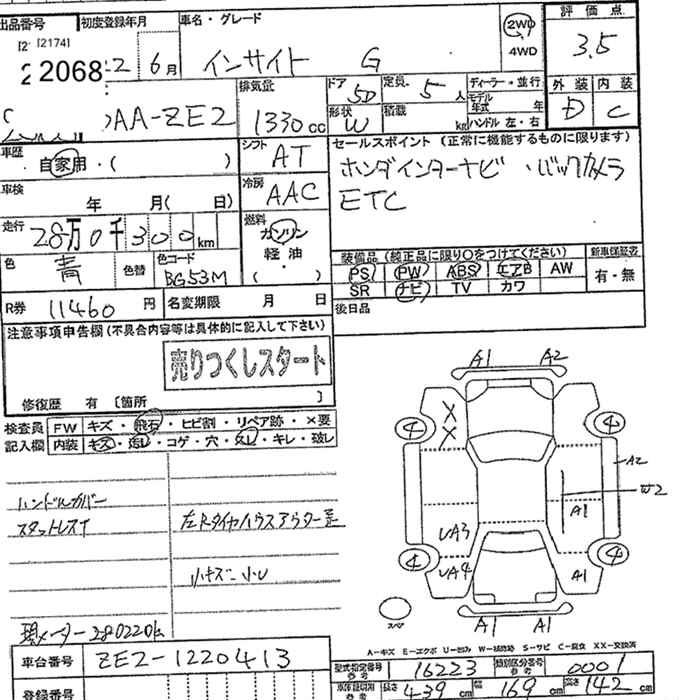 出品番号 初度登録年月 車名・グレード 評価点
[2174]
2 2068 2 6月 インサイト G 2WD 4WD 3.5
DAA-ZE2 排気量 1330cc ドア 5D 定員 5人 ディーラー・並行 外装 内装
形状 W 積載 kg モデル年式 年 D C
ハンドル 左・右
車歴 自家用・( ) シフト AT セールスポイント (正常に機能するものに限ります)
車検 年 月( 日) 冷房 AAC ホンダインターナビ・バックカメラ
ETC
走行 28万0千300km 燃料 ガソリン 軽油 ・( )
色 青 色替 色コード BG53M 装備品(純正品に限り○をつけてください) 新車保証書
PS PW ABS エアB AW 有・無
SR ナビ TV カワ
R券 11460円 名変期限 月 日 後日品
注意事項申告欄(不具合内容等は具体的に記入して下さい)
売りつくしスタート
修復歴 有〔箇所 〕
検査員 FW キズ・飛石・ヒビ割・リペア跡・×要
記入欄 内装 キズ・汚レ・コゲ・穴・スレ・キレ・破レ
ハンドルカバー
スタットレスT 左Rタイヤハウスアウター
小キズ 小U
現メーター280220k
A1 A2
X
X
4 4
A2
W2
A1
UA3
4 4
UA4 A1
A1 A1
スペア
A-キズ E-エクボ U-凹み W-補修跡 S-サビ C-腐食 XX-交換済
車台番号 ZE2-1220413 型式指定番号 参考 16223 類別区分番号 参考 0001
登録番号 車庫証明用 参考 長さ 439cm 幅 169cm 高さ 142cm